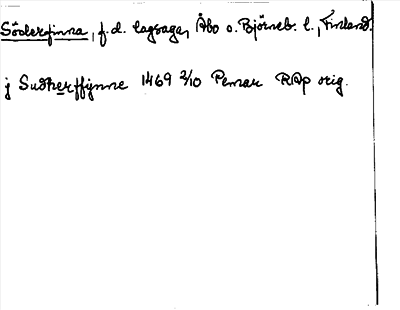 Söderfinna, f.d. lagsaga, Åbo o. Björneb. l., Finland.
j Sudherffynne 1469 2/10 Pemar RAp orig.